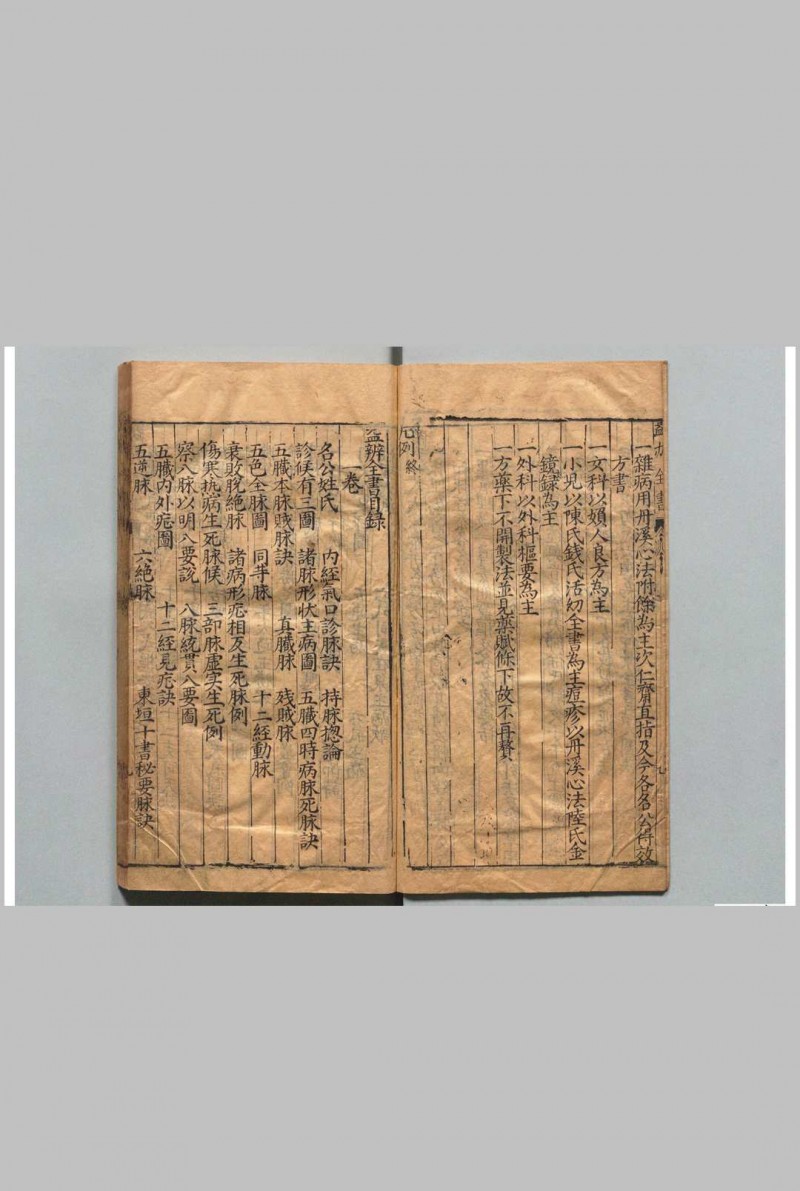 一雜病用丹溪心法附餘為主次仁齋直指及今各名公得效
方書
一女科以婦人良方為主
一小児以陳氏錢氏活幼全書為主痘疹以丹溪心法陸氏金
鏡録為主
一外科以外科樞要為主
一方藥下不開製法並見藥賦條下故不再贅
凡例終
辨全書目録
一卷
名公姓氏 内經氣口診脉訣 持脉揔論
診候有三圖 諸脉形狀主病圖 五臓四時病脉死脉訣
五臓本脉賊脉訣 真臓脉 残賊脉
五色全脉圖 同等脉 十二經動脉
衰敗脱絶脉 諸病形症相反生死脉例
傷寒熱病生死脉候 三部脉虛实生死例
察八脉以明八要說 八脉統貫八要圖
五臓内外症圖 十二經見症訣
五逆脉 六絶脉 東垣十書秘要脉訣